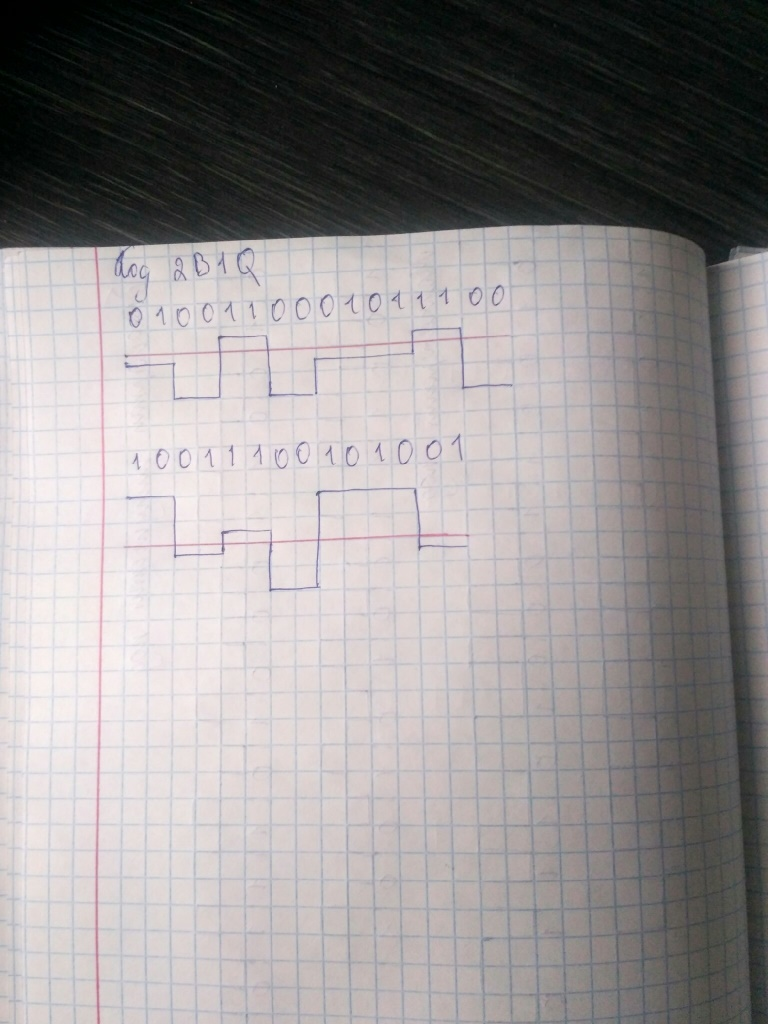 Код 2B1Q
0 1 0 0 1 1 0 0 0 1 0 1 1 1 0 0
1 0 0 1 1 1 0 0 1 0 1 0 0 1